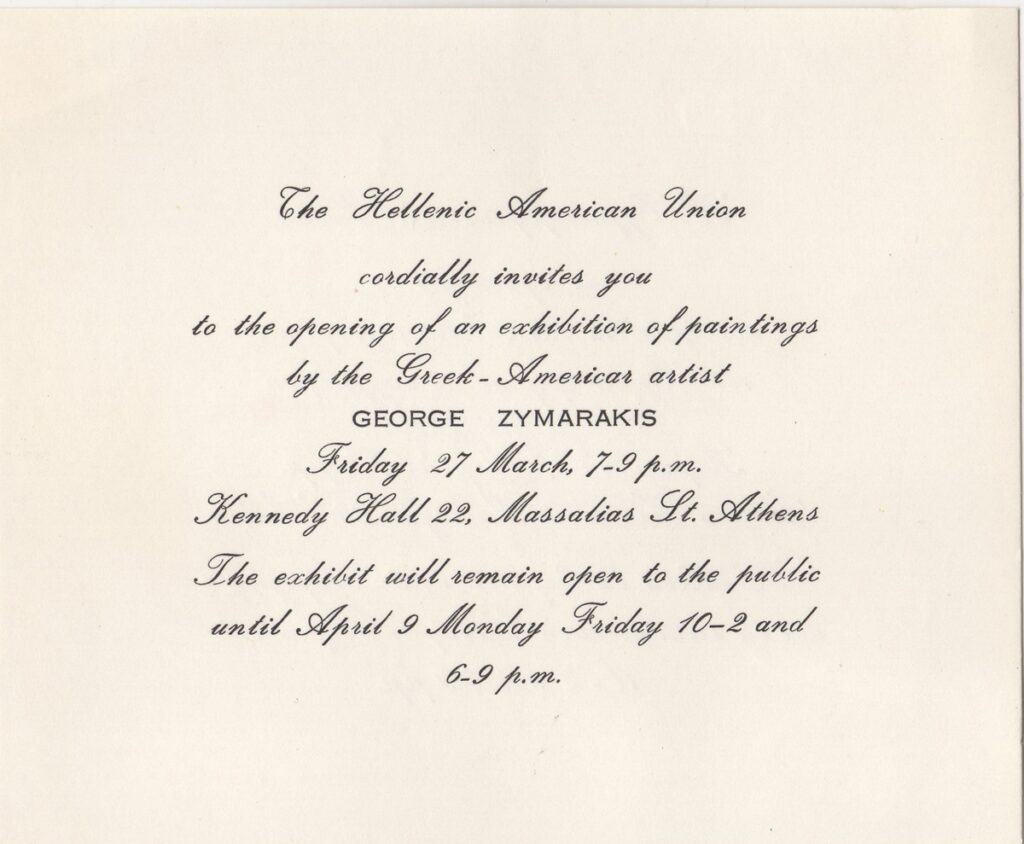 The Hellenic American Union
cordially invites you
to the opening of an exhibition of paintings
by the Greek-Americar artist
GEORGE ZYMARAKIS
Friday 27 March, 7-9 p.m.
Kennedy Hall 22, Massalias St. Athens
The exhibit will remain open to the public
until April 9 Monday Friday 10-2 and
6-9 p.m.